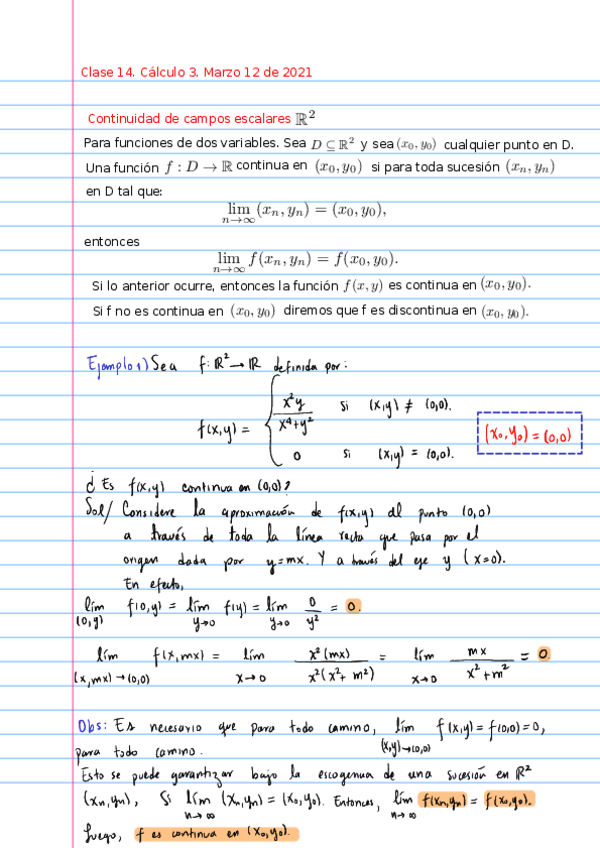 Clase 14. Cálculo 3. Marzo 12 de 2021
Continuidad de campos escalares ℝ²
Para funciones de dos variables. Sea D ⊆ ℝ² y sea (x₀, y₀) cualquier punto en D.
Una función f : D → ℝ continua en (x₀, y₀) si para toda sucesión (xₙ, yₙ)
en D tal que:
lim n→∞ (xₙ, yₙ) = (x₀, y₀),
entonces
lim n→∞ f(xₙ, yₙ) = f(x₀, y₀).
Si lo anterior ocurre, entonces la función f(x, y) es continua en (x₀, y₀).
Si f no es continua en (x₀, y₀) diremos que f es discontinua en (x₀, y₀).
Ejemplo 1) Sea f: ℝ² → ℝ definida por:
f(x,y) = { x²y / x⁴+y² si (x,y) ≠ (0,0).
0 si (x,y) = (0,0).
(x₀, y₀) = (0,0)
¿ Es f(x,y) continua en (0,0)?
Sol/ Considere la aproximación de f(x,y) al punto (0,0)
a través de toda la línea recta que pasa por el
origen dada por y=mx. Y a través del eje y (x=0).
En efecto,
lím (0,y) f(0,y) = lím y→0 f(y) = lím y→0 0/y² = 0.
lím (x,mx)→(0,0) f(x,mx) = lím x→0 x²(mx) / x²(x²+m²) = lím x→0 mx / x²+m² = 0.
Obs: Es necesario que para todo camino, lím (x,y)→(0,0) f(x,y) = f(0,0) = 0,
para todo camino.
Esto se puede garantizar bajo la escogencia de una sucesión en ℝ²
(xₙ,yₙ), Si lím n→∞ (xₙ,yₙ) = (x₀,y₀). Entonces, lím n→∞ f(xₙ,yₙ) = f(x₀,y₀).
Luego, f es continua en (x₀,y₀).